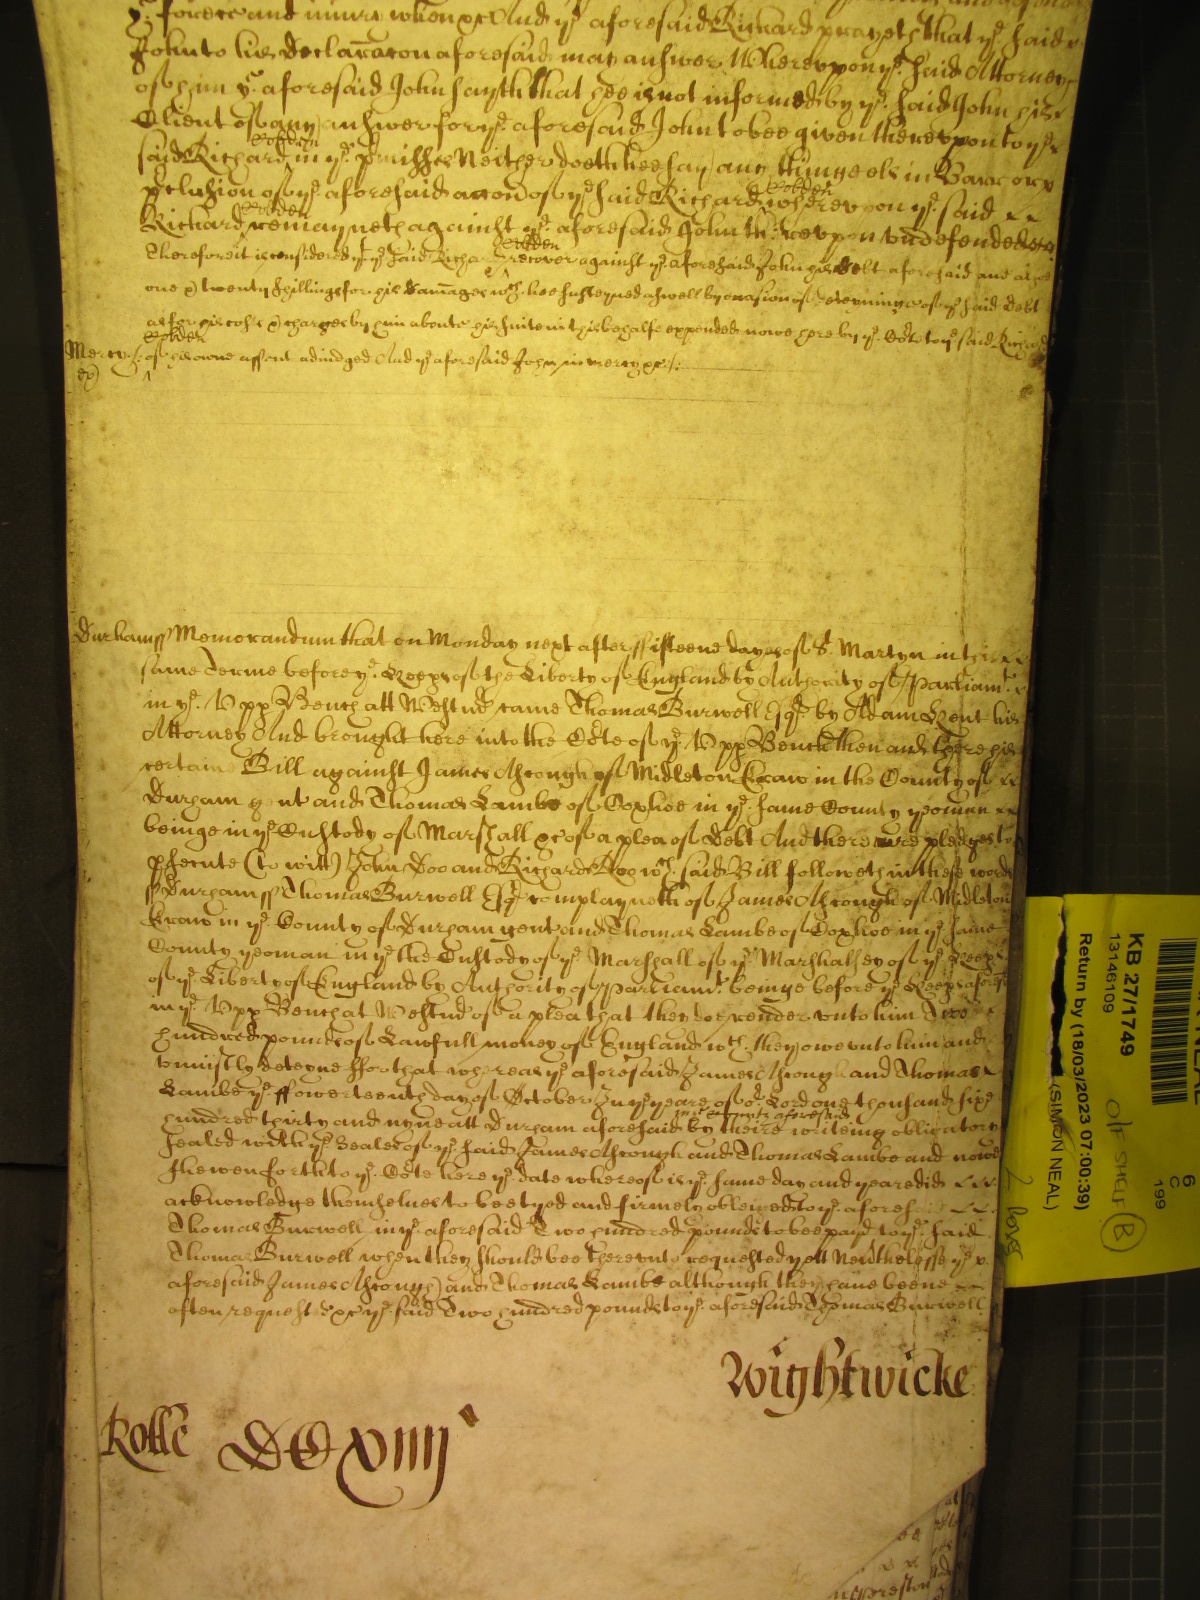 force and iniury when &c And ye aforesaid Richard prayeth that ye said
John to his declaracon aforesaid may answer Wherevpon ye said Attorney
of him ye aforesaid John sayth that hee is not informed by ye said John his
Client of any answer for ye aforesaid John to bee given therevpon to ye
said Richard Robden in ye pmisses Neither doeth hee say any thinge els in Barr or
pclusion of ye aforesaid accon of ye said Richard Robden wherevpon ye said
Richard Robden remayneth against ye aforesaid John therevpon vndefended &c
Therefore it is considered yt ye said Richard Robden recover against ye aforesaid John his debt aforesaid and alsoe
one & twenty shillings for his damages wch hee susteyned aswell by occasion of deteyninge of ye said debt
as for his costs & charges by him aboute his suite in this behalfe expended nowe here by ye Cote to ye said Richard
Robden of his owne assent adiudged And ye aforesaid John in mercy &c
Mercy
Durham ss Memorandum that on Monday next after fifteene dayes of St. Martyn in this
same Terme before ye Keeps of the Liberty of England by Authority of Parliamt
in ye Vpp Bench att Westmr came Thomas Burwell Esqr by Adam Bent his
Attorney And brought here into the Cote of ye Vpp Bench then and there his
certain Bill against James Ascough of Midleton Kraw in the County of
Durham gent and Thomas Lambe of Coxhoe in ye same County yeoman
beinge in ye Custody of Marshall &c of a plea of debt And there were pledges to
psecute (to witt) John Doo and Richard Roo wch said Bill followeth in these words
ss Durham ss Thomas Burwell Esqr complayneth of James Ascough of Midleton
Kraw in ye County of Durham gent and Thomas Lambe of Coxhoe in ye same
County yeoman in ye the Custody of ye Marshall of ye Marshalsey of ye Keeps
of ye Liberty of England by Authority of Parliamt beinge before ye Keeps aforesd
in ye Vpp Bench at Westmr of a plea that they doe render vnto him Two
hundred pounds of Lawfull money of England wch they owe vnto him and
vniustly deteyne ffor that whereas ye aforesaid James Ascough and Thomas
Lambe ye ffowerteenth day of October In ye yeare of or Lord one thousand sixe
hundred thirty and nyne att Durham aforesaid in ye County aforesaid by theire writeing obligatory
sealed with ye Seales of ye said James Ascough and Thomas Lambe and nowe
shewen forth to ye Cote here ye date whereof is ye same day and yeare did
acknowledge themselues to bee tyed and firmely obleiged to ye afores
Thomas Burwell in ye aforesaid Two hundred pounds to bee paid to ye said
Thomas Burwell when they should bee therevnto requested yett Neverthelesse ye
aforesaid James Ascough and Thomas Lambe although they haue beene
often requested &c ye said Two hundred pounds to ye aforesaid Thomas Burwell
Wightwicke
Rolle DCXIIII
KB 27/1749
13146109
Return by (18/03/2023 07:00:39)
(SIMON NEAL)
O/F SHELF B
6
C
199